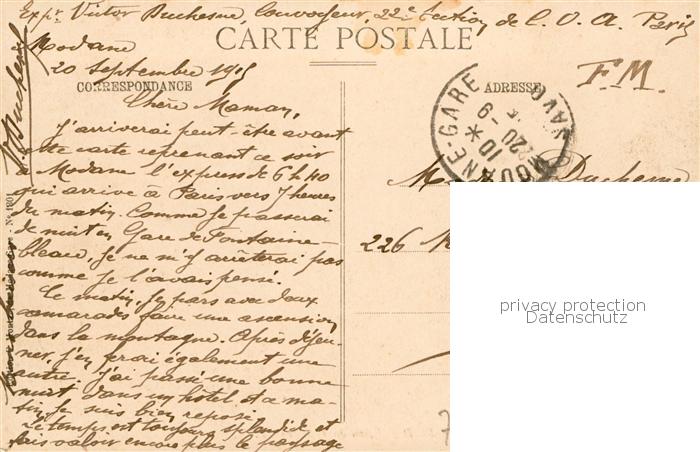 Expr Victor Duchesne, Convoyeur, 22e Section de C. O. A. Paris
CARTE POSTALE
Modane
20 Septembre 1915
CORRESPONDANCE
ADRESSE
F.M.
Chère Maman,
J'arriverai peut-être avant
cette carte reprenant ce soir
à Modane l'express de 6 h 40
qui arrive à Paris vers 7 heures
du matin. Comme je passerai
de nuit en Gare de Fontaine-
bleau, je ne m'y arrêterai pas
comme je l'avais pensé.
Ce matin, je pars avec deux
camarades faire une ascension
dans la montagne. Après déjeu-
ner, j'en ferai également une
autre. J'ai passé une bonne
nuit dans un hôtel et ce ma-
tin je suis bien reposé.
Le temps est toujours splendide et
fait valoir encore plus le paysage
V. Duchesne
MODANE-GARE
10 *
20 - 9
SAVOIE
Duchesne
226
privacy protection
Datenschutz